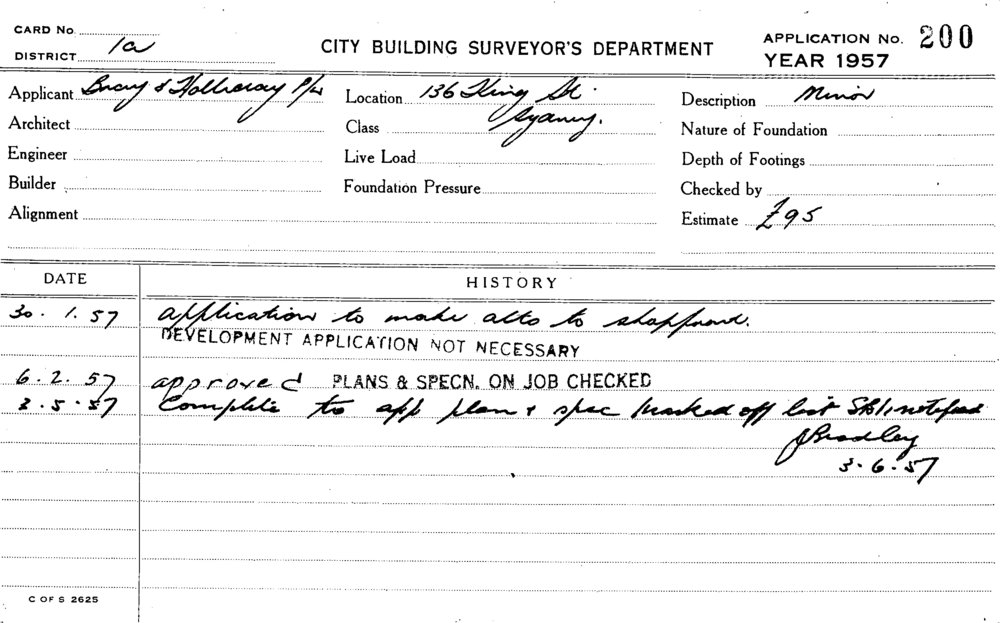 CARD No.
DISTRICT 1a
CITY BUILDING SURVEYOR'S DEPARTMENT
APPLICATION No. 200
YEAR 1957
Applicant Bray & Holliway P/L
Architect
Engineer
Builder
Alignment
Location 136 King St.
Sydney.
Class
Live Load
Foundation Pressure
Description Minor
Nature of Foundation
Depth of Footings
Checked by
Estimate £95
DATE HISTORY
30. 1. 57 application to make alts to shopfront.
DEVELOPMENT APPLICATION NOT NECESSARY
6. 2. 57 approved PLANS & SPECN. ON JOB CHECKED
3. 5. 57 Complete to app plan & spec marked off list notified
J Bradley
3. 6. 57
C OF S 2625